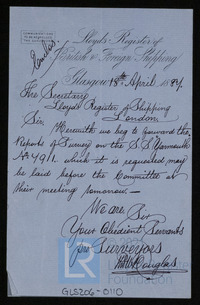 Enclos.
Lloyd's Register of
British & Foreign Shipping
Glasgow 18th April 1884
The Secretary
Lloyds Register of Shipping
London.
Sir,
Herewith we beg to forward the
Reports of Survey on the S.S. "Yarmouth"
No 4991. which it is requested may
be laid before the Committee at
their meeting tomorrow.
We are Sir
Your Obedient Servants
pro Surveyors
GLS206-0110